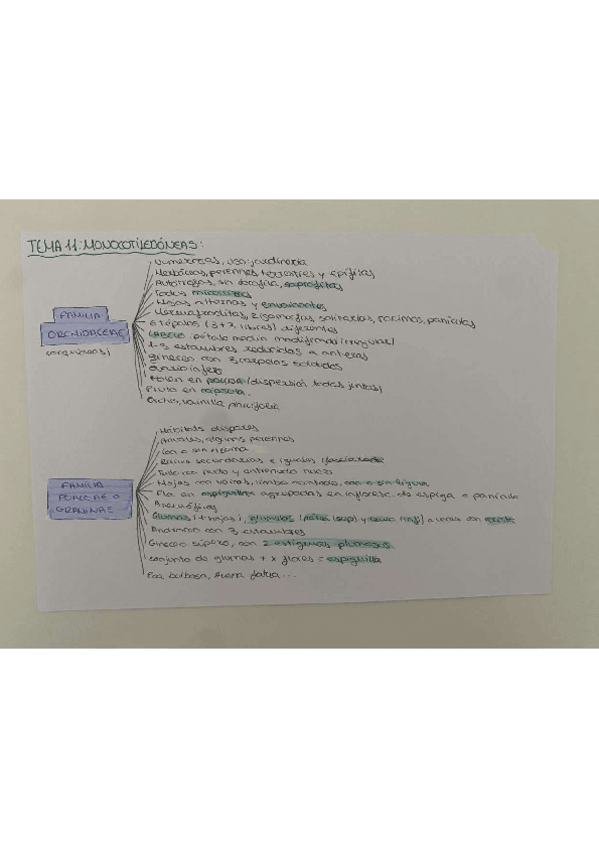 TEMA 11: MONOCOTILEDÓNEAS:
FAMILIA
ORCHIDACEAS
(orquídeas)
Numerosas, uso: jardinería
Herbáceas, perennes, terrestres y epífitas
Autótrofas, sin clorofila, saprofitas
Todas micorrizas
Hojas alternas y envainantes
Hermafroditas, zigomorfas, solitarias, racimos, panículas
6 tépalos (3+3 libres) diferentes
Labelo: pétalo medio modificado irregular)
1-3 estambres reducidos a anteras
Gineceo con 3 carpelos soldados
Ovario ínfero
Polen en (dispersión todas juntas)
Fruto en cápsula.
Orchis, vainilla planifolia
FAMILIA
POACEAE O
GRAMINAS
Hábitats dispares
Anuales, algunas perennes
Con o sin rizoma
Raíces secundarias e iguales
Tallo con nudo y entrenudo hueco
Hojas con vaina, limbo, con o sin lígula
Flo. en espiguillas agrupadas en infloresc. de espiga o panícula
Anemófilas
Glumas (+ bajas), glumelas (sup) y (inf)) a veces con
Androceo con 3 estambres
Gineceo súpero, con 2 estigmas plumosos
Conjunto de glumas + x flores = espiguilla
Poa bulbosa,